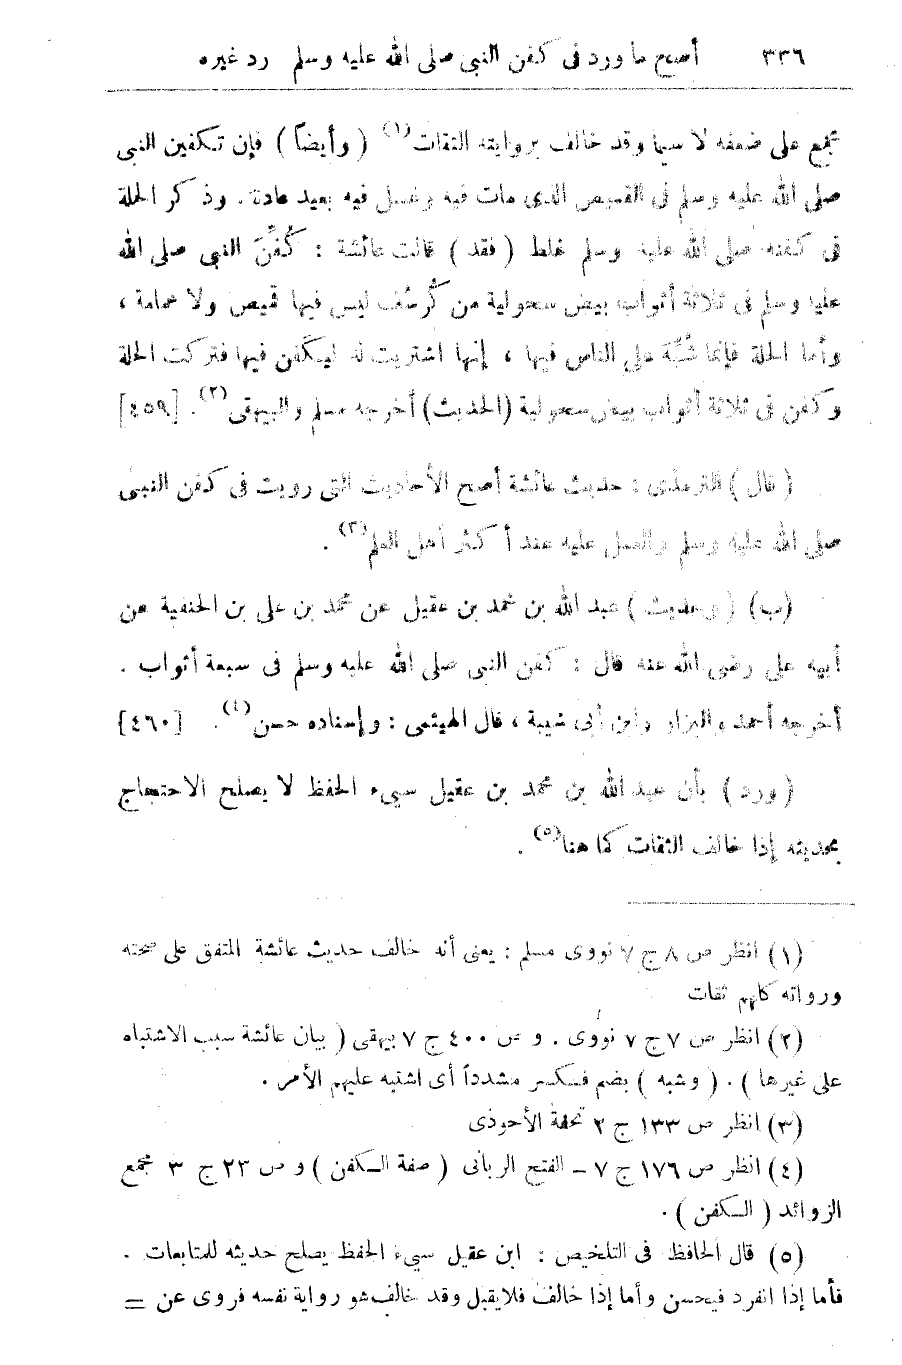 ٣٣٦ أصح ما ورد فى كفن النبى صلى الله عليه وسلم رد غيره
مجمع على ضعفه لا سيما وقد خالف بروايته الثقات(١) ( وأيضاً ) فإن تكفين النبى
صلى الله عليه وسلم فى القميص الذى مات فيه وغسل فيه بعيد عادة . وذكر الحلة
فى كفنه صلى الله عليه وسلم غلط ( فقد ) قالت عائشة : كُفِّنَ النبى صلى الله
عليه وسلم فى ثلاثة أثواب بيض سحولية من كُرسُف ليس فيها قميص ولا عمامة ،
وأما الحلة فإنما شُبِّهَ على الناس فيها ، إنها اشتريت له ليكفن فيها فتركت الحلة
وكفن فى ثلاثة أثواب بيض سحولية (الحديث) أخرجه مسلم والبيهقى(٢) . [٤٥٩]
( قال ) الترمذى : حديث عائشة أصح الأحاديث التى رويت فى كفن النبى
صلى الله عليه وسلم والعمل عليه عند أكثر أهل العلم(٣) .
(ب) ( وحديث ) عبد الله بن محمد بن عقيل عن محمد بن على بن الحنفية عن
أبيه على رضى الله عنه قال : كفن النبى صلى الله عليه وسلم فى سبعة أثواب .
أخرجه أحمد والبزار وابن أبى شيبة ، قال الهيثمى : وإسناده حسن(٤) . [٤٦٠]
( ورد ) بأن عبد الله بن محمد بن عقيل سيىء الحفظ لا يصلح الاحتجاج
بحديثه إذا خالف الثقات كما هنا(٥) .
(١) انظر ص ٨ ج ٧ نووى مسلم : يعنى أنه خالف حديث عائشة المتفق على صحته
ورواته كلهم ثقات
(٢) انظر ص ٧ ج ٧ نووى . و ص ٤٠٠ ج ٧ بيهقى ( بيان عائشة سبب الاشتباه
على غيرها ) . ( وشبه ) بضم فكسر مشدداً أى اشتبه عليهم الأمر .
(٣) انظر ص ١٣٣ ج ٢ تحفة الأحوذى
(٤) انظر ص ١٧٦ ج ٧ – الفتح الربانى ( صفة الكفن ) و ص ٢٣ ج ٣ مجمع
الزوائد ( الكفن ) .
(٥) قال الحافظ فى التلخيص : ابن عقيل سيىء الحفظ يصلح حديثه للمتابعات .
فأما إذا انفرد فيحسن وأما إذا خالف فلايقبل وقد خالف هو رواية نفسه فروى عن =